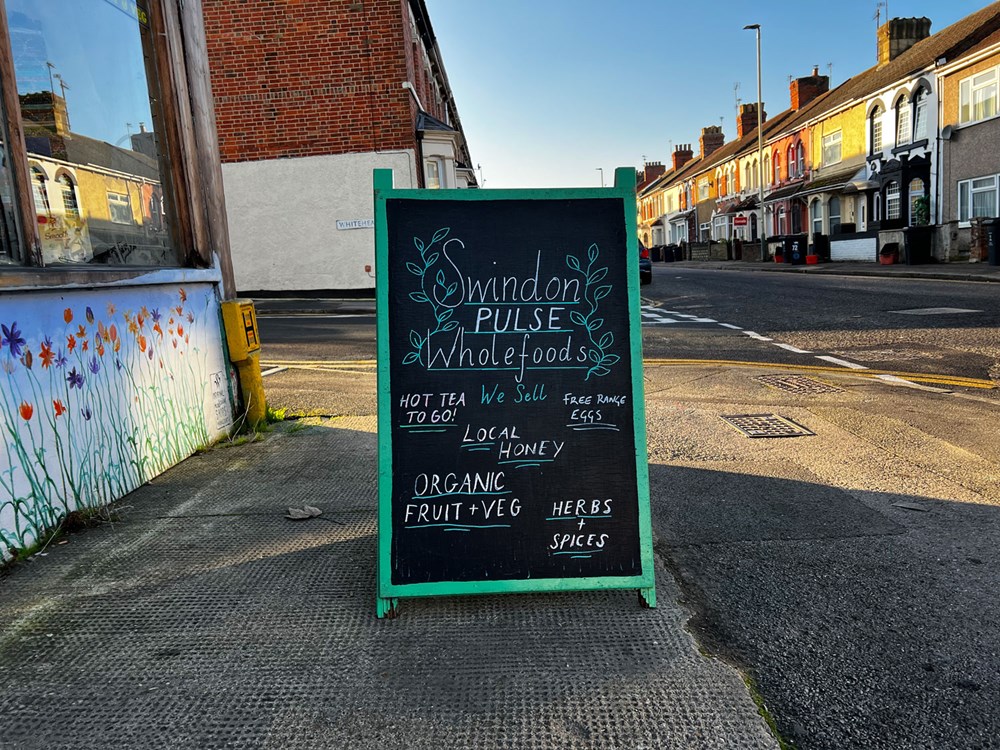 WHITEHE
Swindon
PULSE
Wholefoods
We Sell
HOT TEA
TO GO!
FREE RANGE
EGGS
LOCAL
HONEY
ORGANIC
FRUIT + VEG
HERBS
+
SPICES